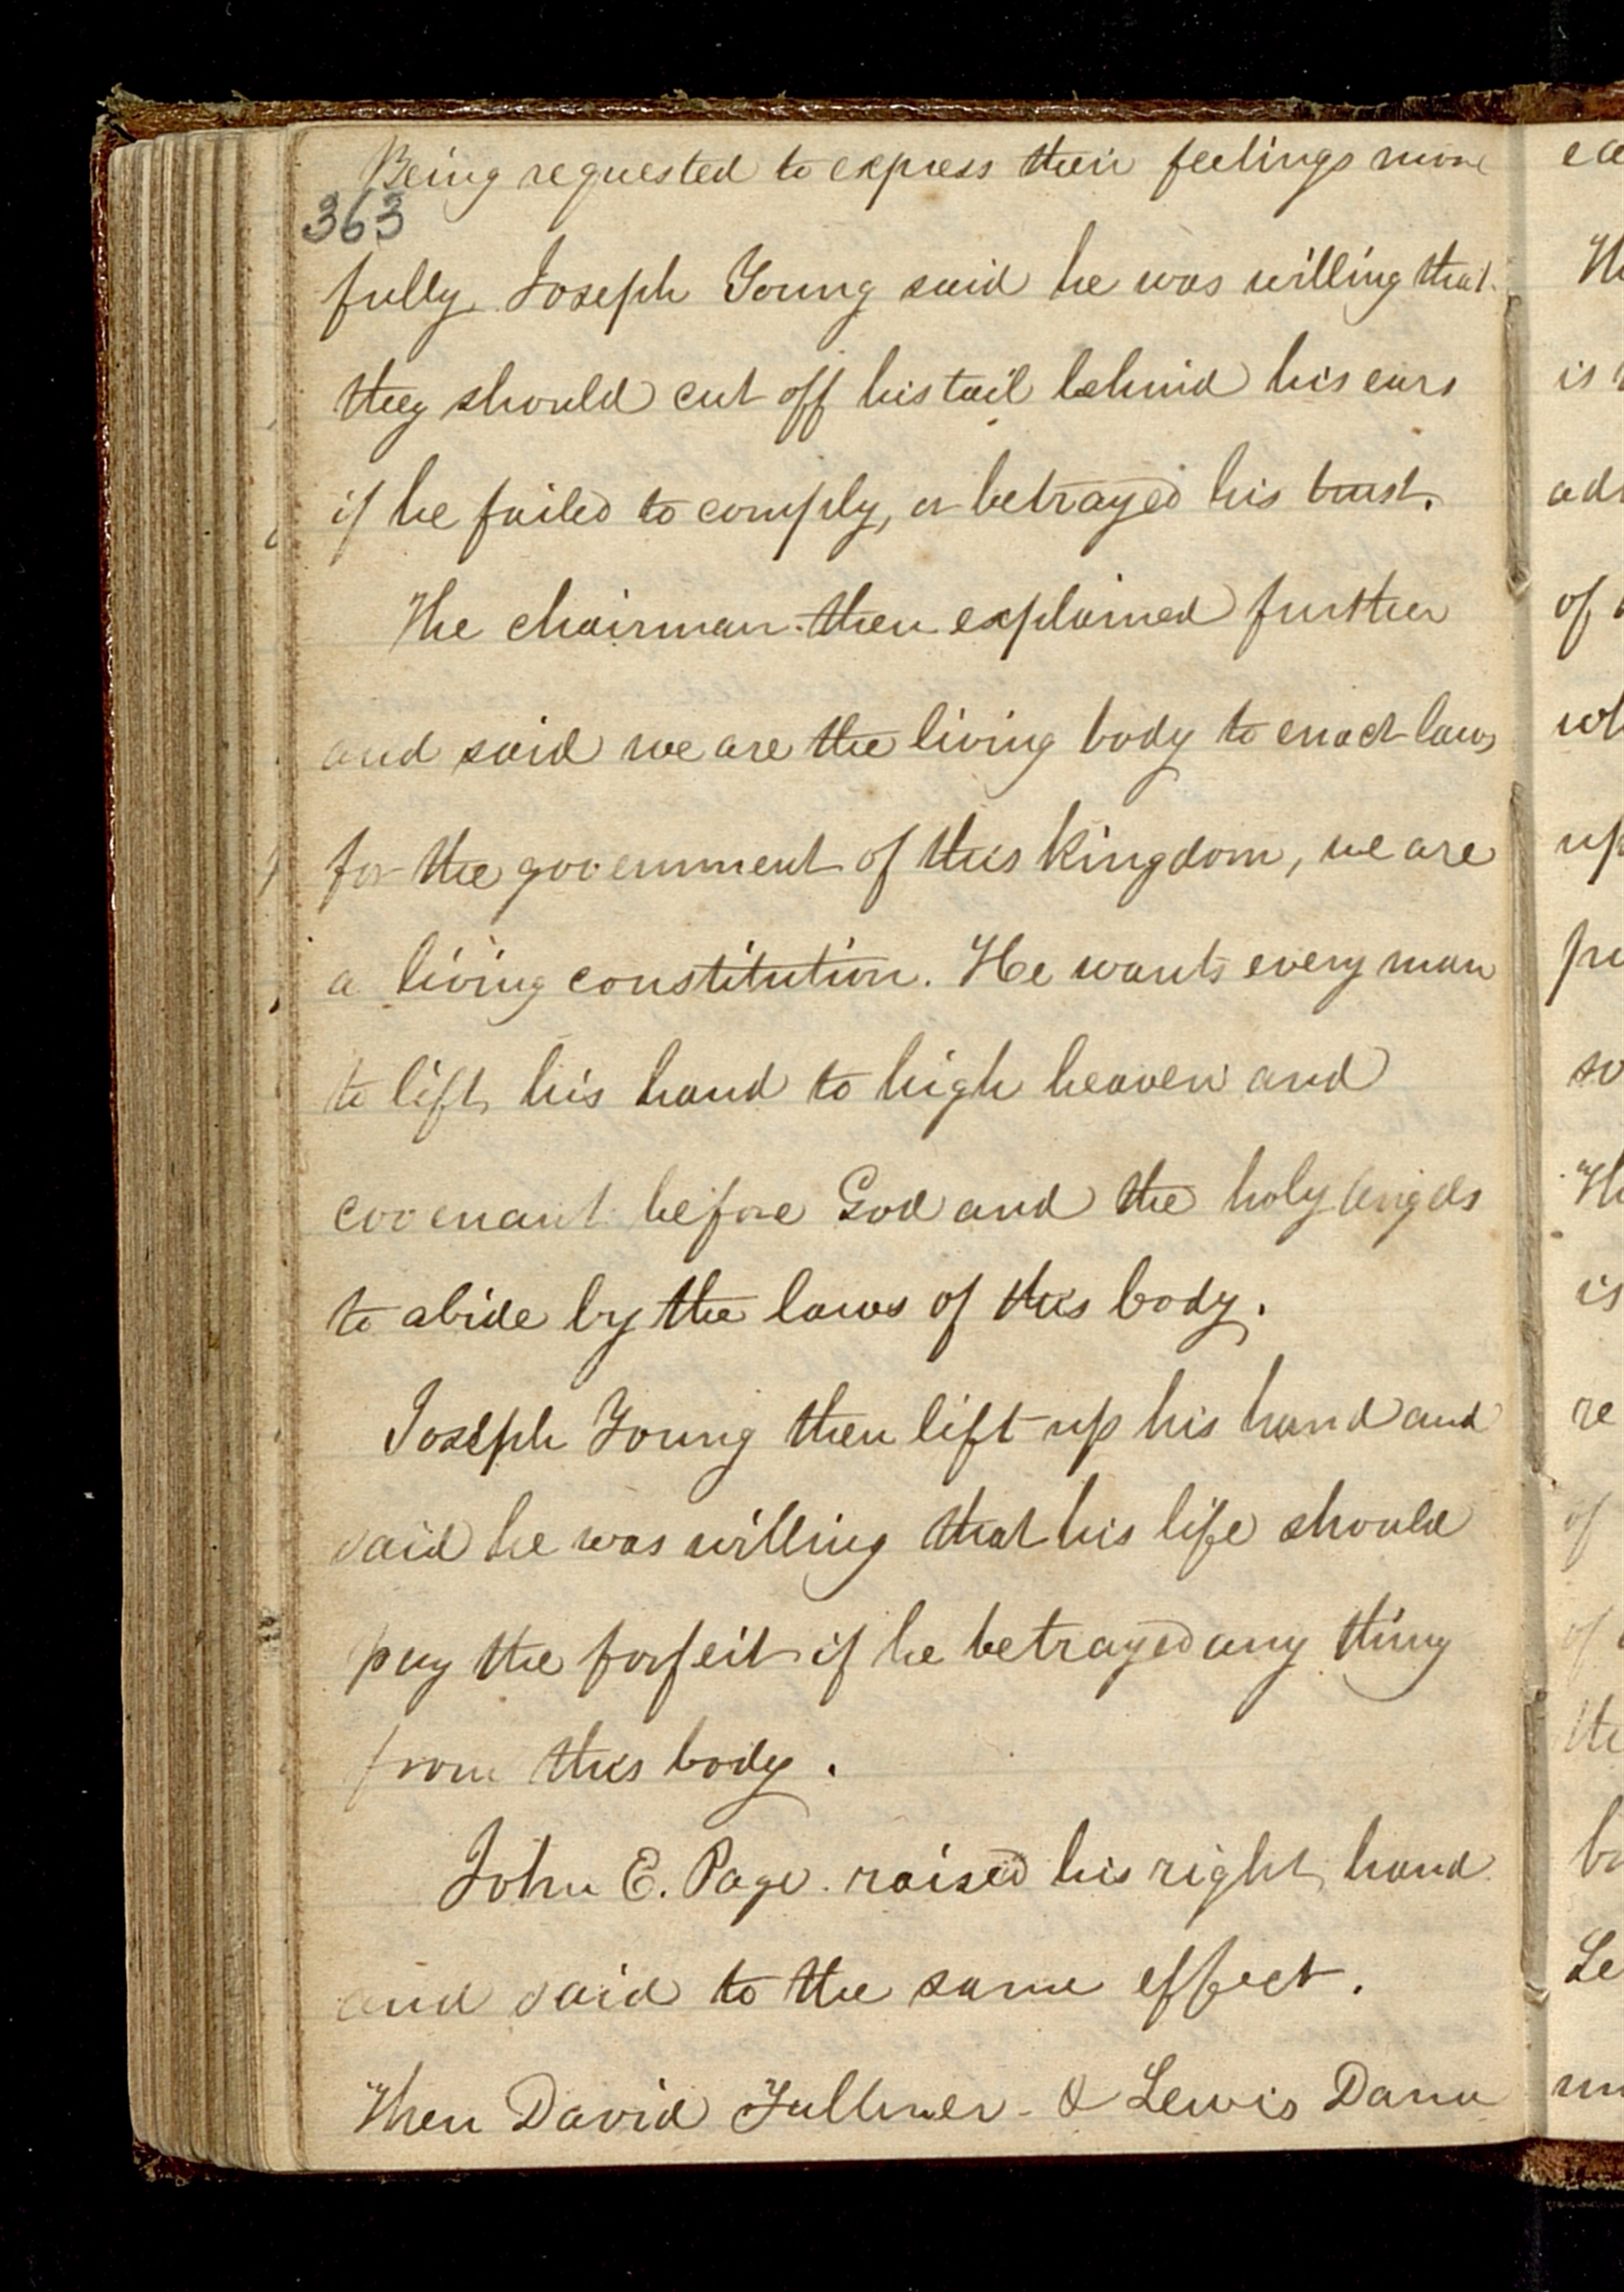 Being requested to express their feelings more
363
fully, Joseph Young said he was willing that
they should cut off his tail behind his ears
if he failed to comply, or betrayed his trust.
The chairman then explained further
and said we are the living body to enact laws
for the government of this kingdom, we are
a living constitution. He wants every man
to lift his hand to high heaven and
covenant before God and the holy angels
to abide by the laws of this body.
Joseph Young then lift up his hand and
said he was willing that his life should
pay the forfeit if he betrayed any thing
from this body.
John E. Page raised his right hand
and said to the same effect.
Then David Fullmer & Lewis Dana